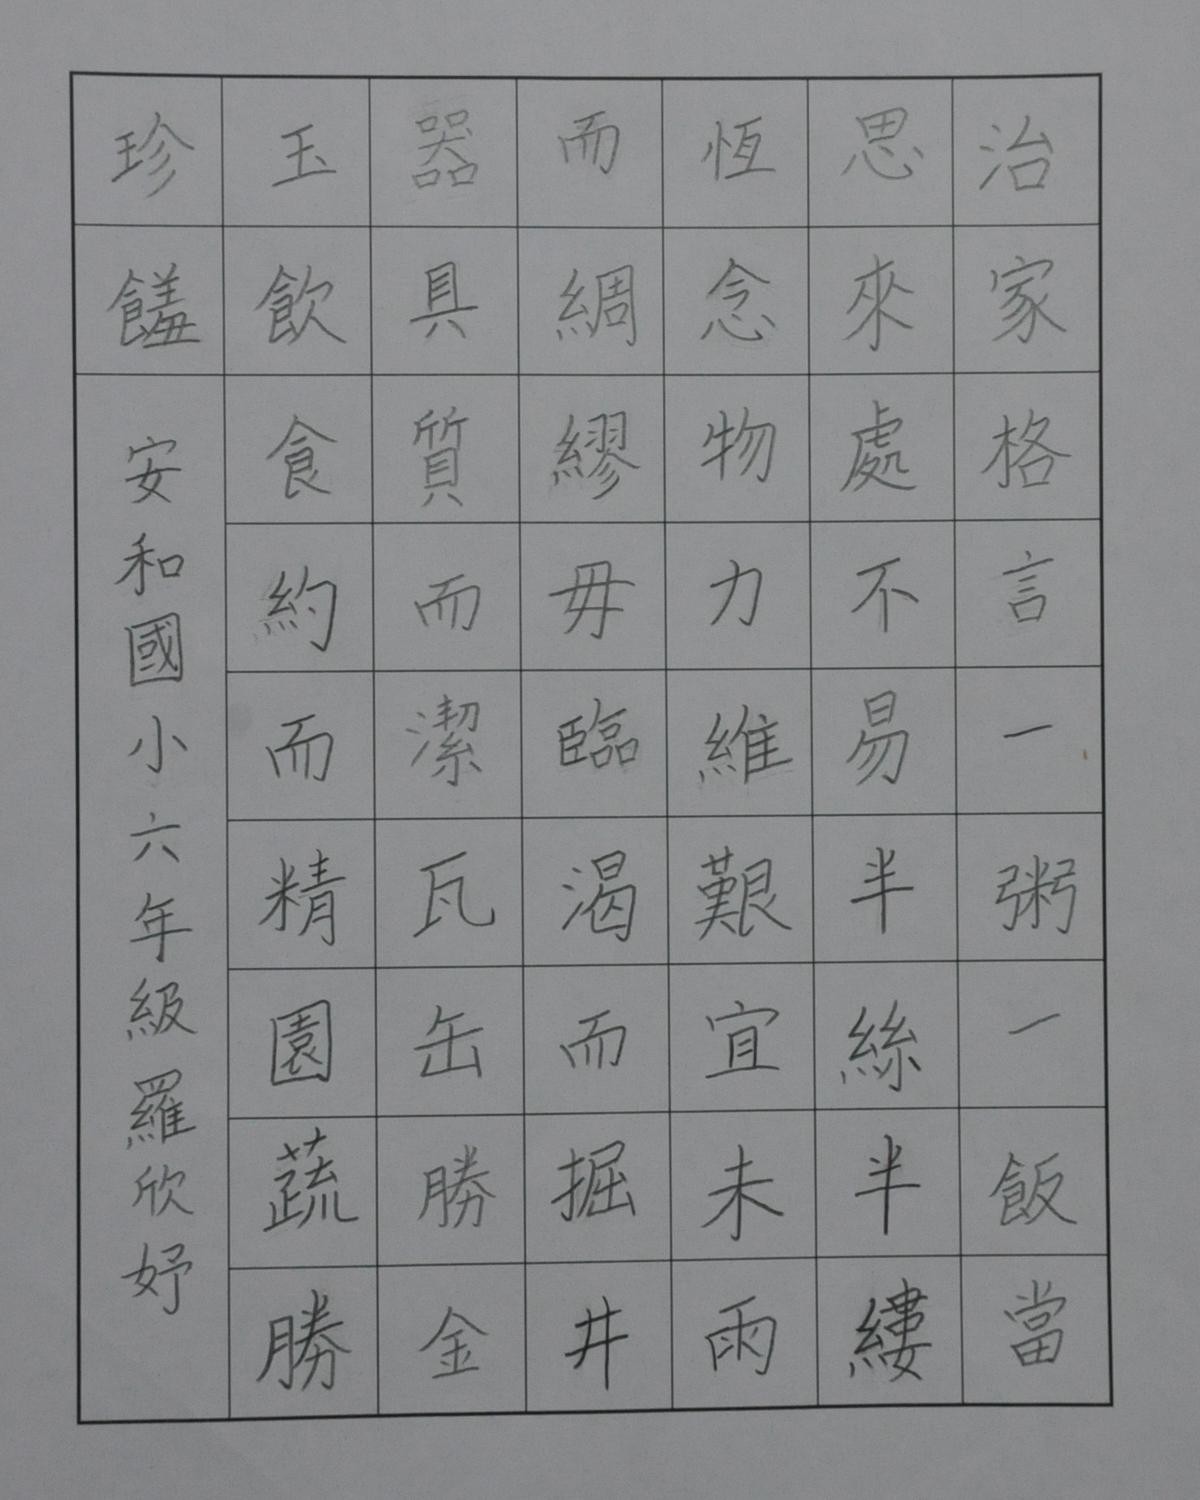 治家格言一粥一飯當
思來處不易半絲半縷
恆念物力維艱宜未雨
而綢繆毋臨渴而掘井
器具質而潔瓦缶勝金
玉飲食約而精園蔬勝
珍饈
安和國小六年級羅欣妤